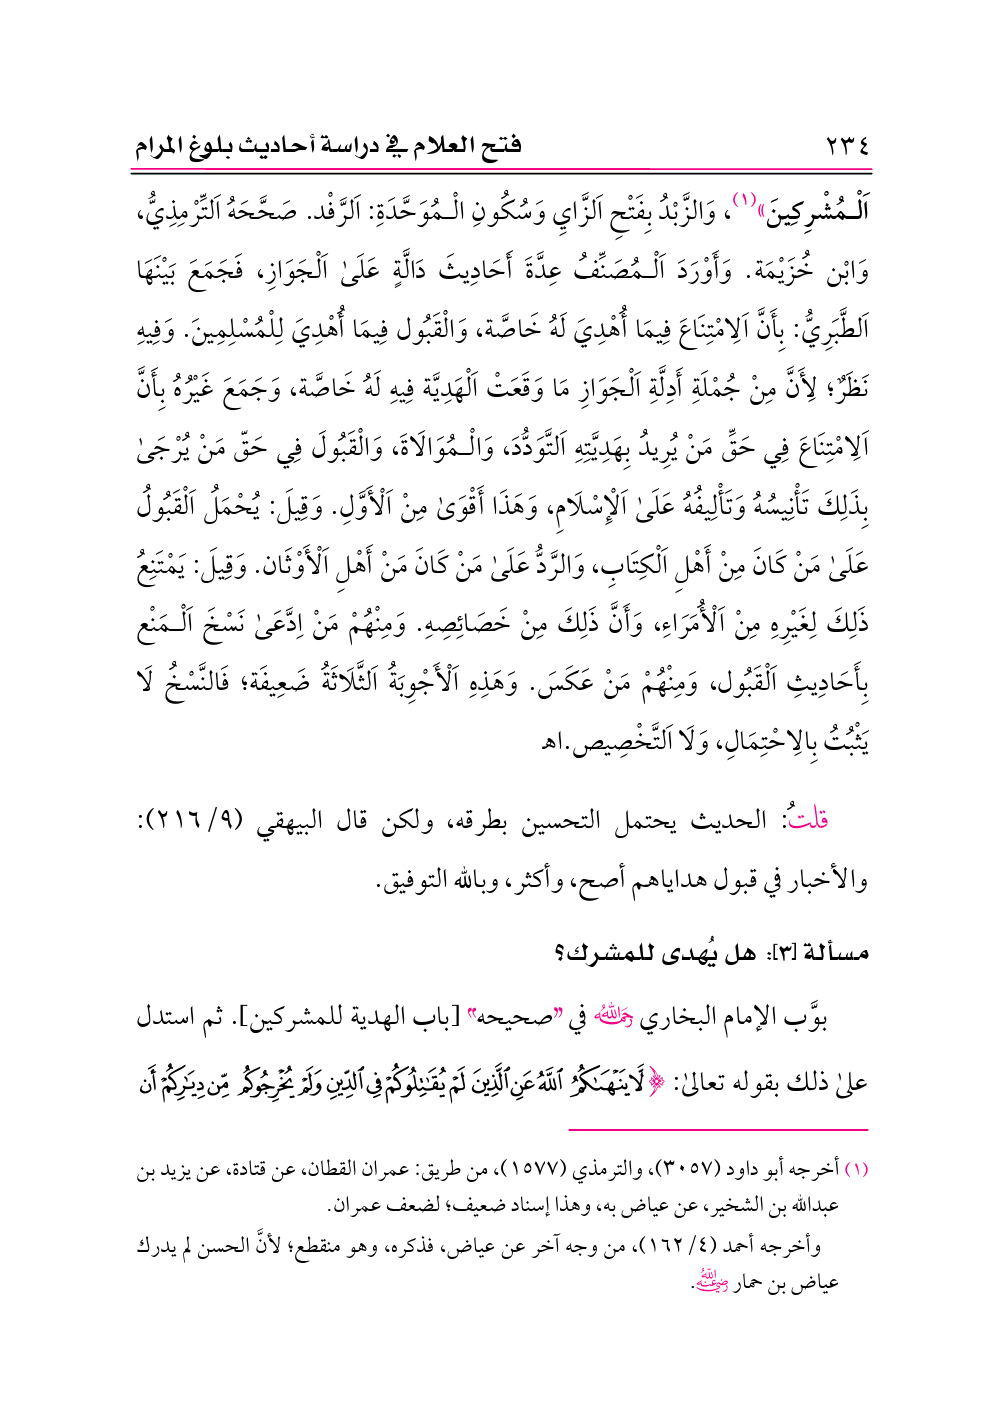 ٢٣٤ فتح العلام في دراسة أحاديث بلوغ المرام
اَلْـمُشْرِكِينَ»(١)، وَالزَّبْدُ بِفَتْحِ اَلزَّايِ وَسُكُونِ الْـمُوَحَّدَةِ: اَلرَّفْد. صَحَّحَهُ اَلتِّرْمِذِيُّ،
وَابْن خُزَيْمَة. وَأَوْرَدَ اَلْـمُصَنِّفُ عِدَّةَ أَحَادِيثَ دَالَّةٍ عَلَىٰ اَلْجَوَازِ، فَجَمَعَ بَيْنَهَا
اَلطَّبَرِيُّ: بِأَنَّ اَلِامْتِنَاعَ فِيمَا أُهْدِيَ لَهُ خَاصَّة، وَالْقَبُول فِيمَا أُهْدِيَ لِلْمُسْلِمِينَ. وَفِيهِ
نَظَرٌ؛ لِأَنَّ مِنْ جُمْلَةِ أَدِلَّةِ اَلْجَوَازِ مَا وَقَعَتْ اَلْهَدِيَّة فِيهِ لَهُ خَاصَّة، وَجَمَعَ غَيْرُهُ بِأَنَّ
اَلِامْتِنَاعَ فِي حَقِّ مَنْ يُرِيدُ بِهَدِيَّتِهِ اَلتَّوَدُّدَ، وَالْـمُوَالَاةَ، وَالْقَبُولَ فِي حَقّ مَنْ يُرْجَىٰ
بِذَلِكَ تَأْنِيسُهُ وَتَأْلِيفُهُ عَلَىٰ اَلْإِسْلَامِ، وَهَذَا أَقْوَىٰ مِنْ اَلْأَوَّلِ. وَقِيلَ: يُحْمَلُ اَلْقَبُولُ
عَلَىٰ مَنْ كَانَ مِنْ أَهْلِ اَلْكِتَابِ، وَالرَّدُّ عَلَىٰ مَنْ كَانَ مَنْ أَهْلِ اَلْأَوْثَان. وَقِيلَ: يَمْتَنِعُ
ذَلِكَ لِغَيْرِهِ مِنْ اَلْأُمَرَاءِ، وَأَنَّ ذَلِكَ مِنْ خَصَائِصِهِ. وَمِنْهُمْ مَنْ اِدَّعَىٰ نَسْخَ اَلْـمَنْع
بِأَحَادِيثِ اَلْقَبُول، وَمِنْهُمْ مَنْ عَكَسَ. وَهَذِهِ اَلْأَجْوِبَةُ اَلثَّلَاثَةُ ضَعِيفَة؛ فَالنَّسْخُ لَا
يَثْبُتُ بِالِاحْتِمَالِ، وَلَا اَلتَّخْصِيص.اﻫ
قلتُ: الحديث يحتمل التحسين بطرقه، ولكن قال البيهقي (٩/ ٢١٦):
والأخبار في قبول هداياهم أصح، وأكثر، وبالله التوفيق.
مسألة [٣]: هل يُهدى للمشرك؟
بوَّب الإمام البخاري رَحِمَهُ اللَّهُ في "صحيحه" [باب الهدية للمشركين]. ثم استدل
علىٰ ذلك بقوله تعالىٰ: ﴿لَّا يَنْهَىٰكُمُ ٱللَّهُ عَنِ ٱلَّذِينَ لَمْ يُقَٰتِلُوكُمْ فِى ٱلدِّينِ وَلَمْ يُخْرِجُوكُم مِّن دِيَٰرِكُمْ أَن
(١) أخرجه أبو داود (٣٠٥٧)، والترمذي (١٥٧٧)، من طريق: عمران القطان، عن قتادة، عن يزيد بن
عبدالله بن الشخير، عن عياض به، وهذا إسناد ضعيف؛ لضعف عمران.
وأخرجه أحمد (٤/ ١٦٢)، من وجه آخر عن عياض، فذكره، وهو منقطع؛ لأنَّ الحسن لم يدرك
عياض بن حمار رضي الله عنه.